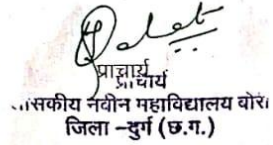 प्राचार्य
प्राचार्य
सकीय नवीन महाविद्यालय बोर
जिला –दुर्ग (छ.ग.)